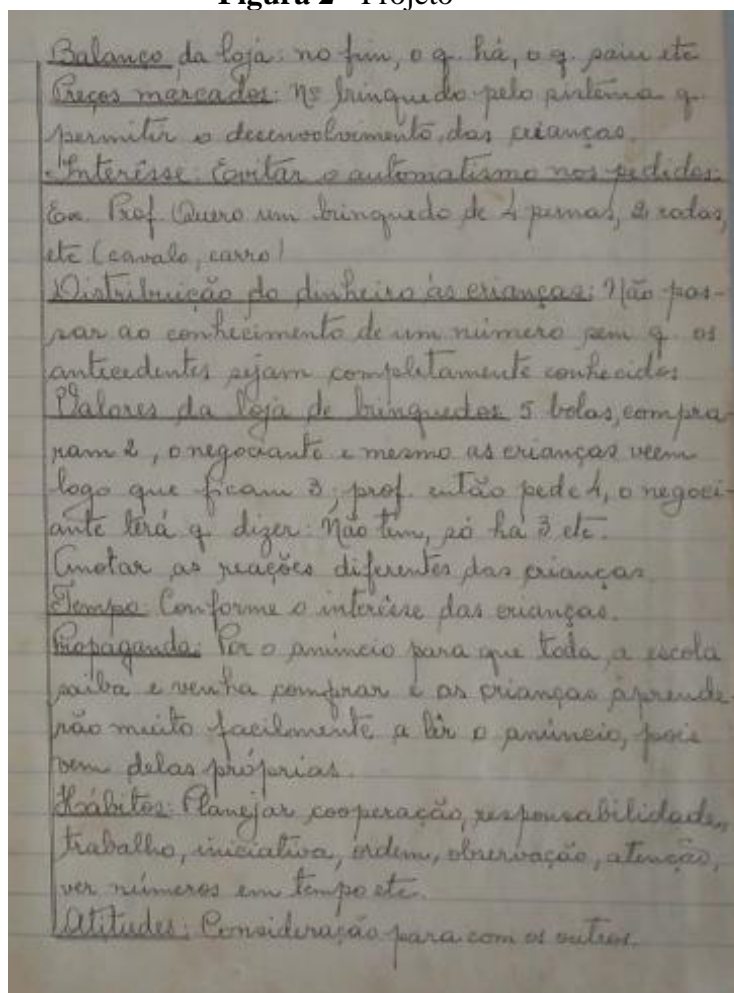 Figura 2 - Projeto
Balanço da loja: no fim, o q. há, o q. saiu etc
Preços marcados: Nº brinquedo pelo sistema q.
permitir o desenvolvimento, das crianças.
Interêsse: Evitar o automatismo nos pedidos:
Ex. Prof. Quero um brinquedo de 4 pernas, 2 rodas,
etc (cavalo, carro)
Distribuição do dinheiro às crianças: Não pas-
sar ao conhecimento de um número sem q. os
antecedentes sejam completamente conhecidos
Valores da loja de brinquedos 5 bolas, compra
ram 2, o negociante e mesmo as crianças veem
logo que ficam 3; prof. então pede 4, o negoci-
ante terá q. dizer: Não tem, só há 3 etc.
Anotar as reações diferentes das crianças
Tempo: Conforme o interêsse das crianças.
Propaganda: Por o anúncio para que toda, a escola
saiba e venha comprar e as crianças aprende
rão muito facilmente a lêr o anúncio, pois
vem delas próprias.
Hábitos: Planejar, cooperação, responsabilidade,
trabalho, iniciativa, ordem, observação, atenção,
ver números em tempo etc.
Atitudes: Consideração para com os outros.